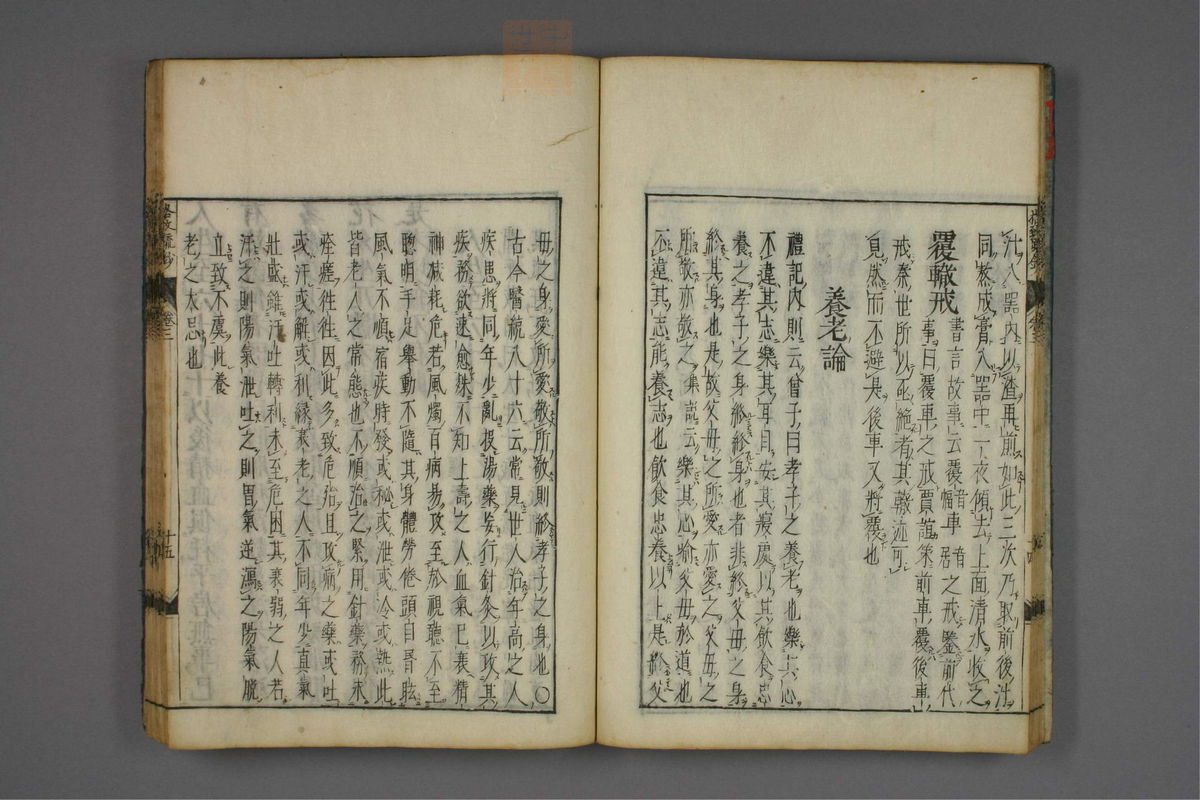 汁入器内以渣再煎如此三次乃取前後汁
同熬成膏入器中一夜傾去上面清水收之
覆轍戒 書言故事云覆音福車音居之戒鑒前代
事曰覆車之戒賈誼策前車覆後車
戒秦世所以亟絶者其轍迹可
見然而不避是後車又將覆也
養老論
禮記内則云曾子曰孝子之養老也樂其心
不違其志樂其耳目安其寢處以其飲食忠
養之孝子之身終終身也者非終父母之身
終其身也是故父母之所愛亦愛之父母之
所敬亦敬之集説云樂其心喩父母於道也
不違其志能養志也飲食忠養以上是終父
母之身愛所愛敬所敬則終孝子之身也〇
古今醫統八十六云常見世人治年高之人
疾患將同年少亂投湯藥妄行針灸以攻其
疾務欲速愈殊不知上壽之人血氣已衰精
神减耗危若風燭百病易攻至於視聽不至
聰明手足舉動不隨其身體勞倦頭目昏眩
風氣不順宿疾時發或秘或泄或冷或熱此
皆老人之常態也不順治之緊用針藥務求
痊瘥徃徃因此多致危殆且攻病之藥或吐
或汗或解或利縁衰老之人不同年少眞氣
壯盛雖汗吐轉利未至危困其衰弱之人若
汗之則陽氣泄吐之則胃氣逆瀉之陽氣脱
立致不虞此養
老之大忌也
格致𤴓抄
卷三
十五